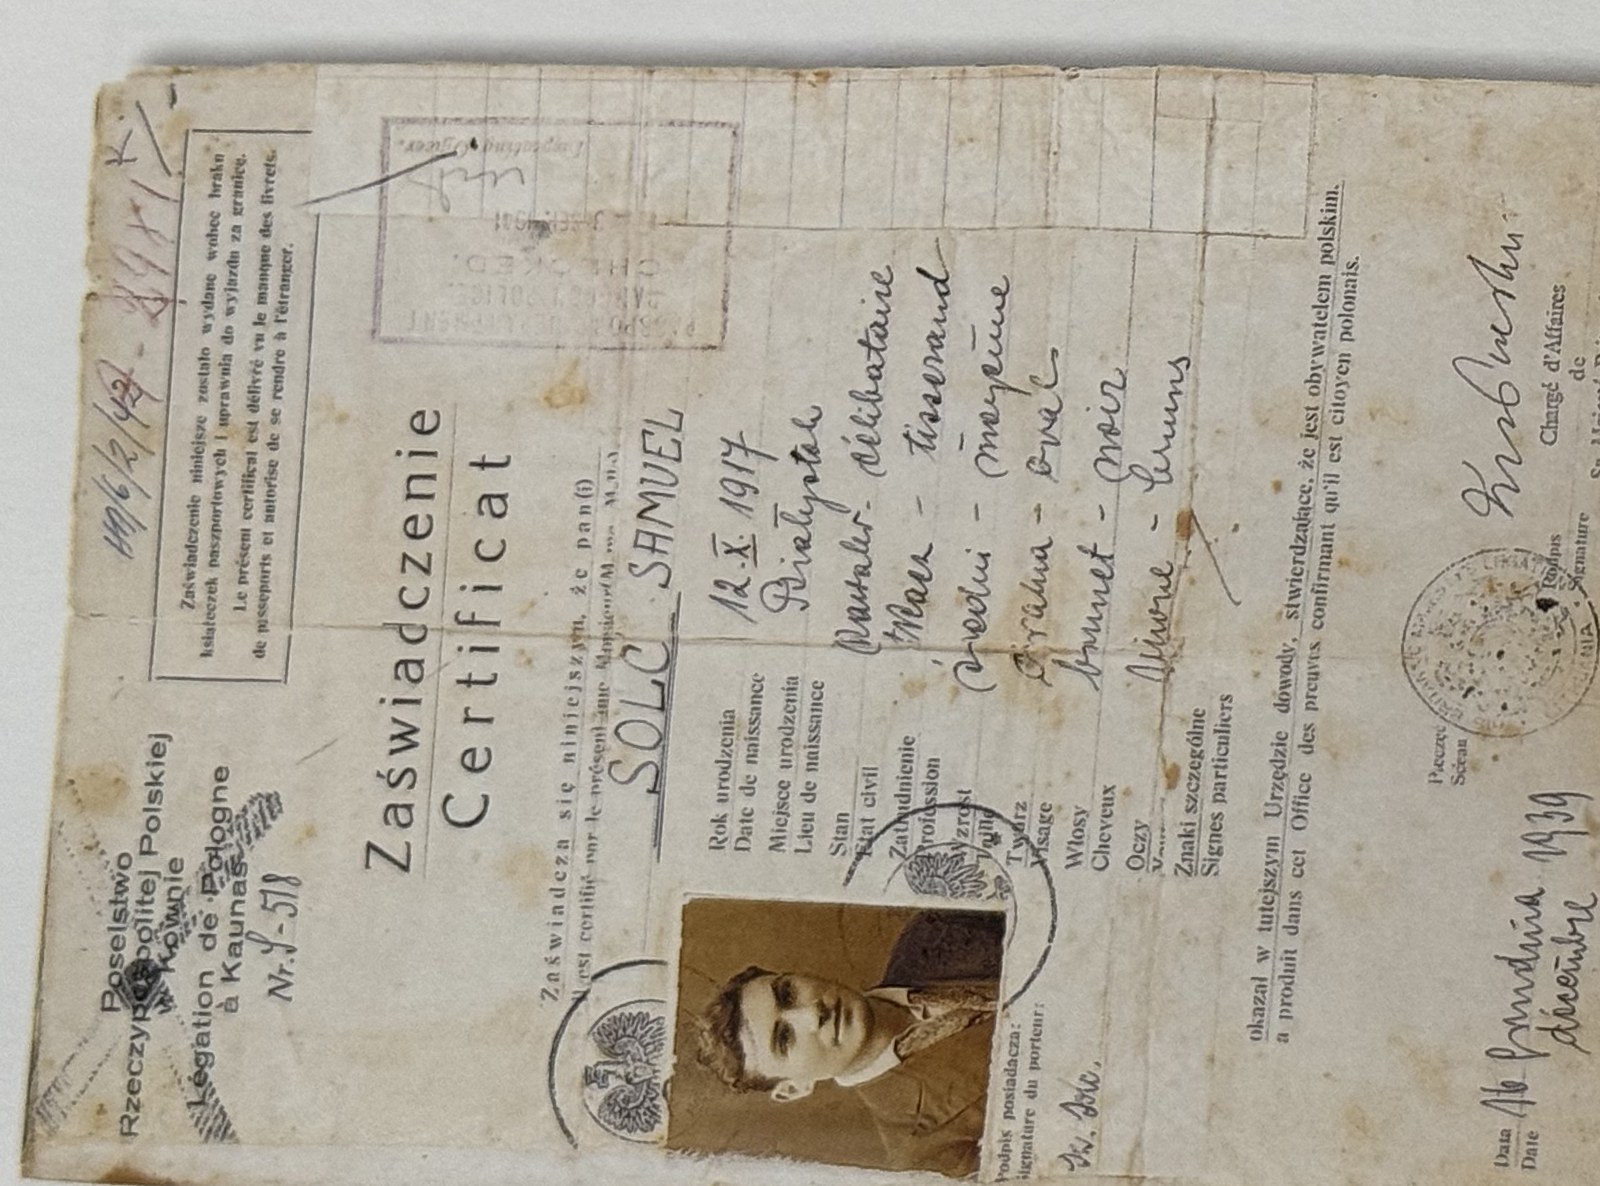 Poselstwo
Rzeczypospolitej Polskiej
w Kownie
Légation de Pologne
à Kaunas
Nr. S-518
Zaświadczenie niniejsze zostało wydane wobec braku
książeczek paszportowych i uprawnia do wyjazdu za granicę.
Le présent certificat est délivré vu le manque des livrets
de passeports et autorise de se rendre à l'étranger.
Zaświadczenie
Certificat
CHECKED.
Inspecting Officer.
Zaświadcza się niniejszym, że pan(i)
est certifié par le présent que
SOLC SAMUEL
Rok urodzenia
Date de naissance
12.X.1917
Miejsce urodzenia
Lieu de naissance
Białystok
Stan
Etat civil
kawaler - célibataire
Zatrudnienie
Profession
tkacz - tisserand
Wzrost
Taille
średni - moyenne
Twarz
Visage
owal
Włosy
Cheveux
brunet - noir
Oczy
piwne - bruns
Znaki szczególne
Signes particuliers
Podpis posiadacza:
Signature du porteur:
okazał w tutejszym Urzędzie dowody, stwierdzające, że jest obywatelem polskim.
a produit dans cet Office des preuves confirmant qu'il est citoyen polonais.
Pieczęć
Scéau
Podpis
Signature
Chargé d'Affaires
de
Data 16 grudnia 1939
Date décembre